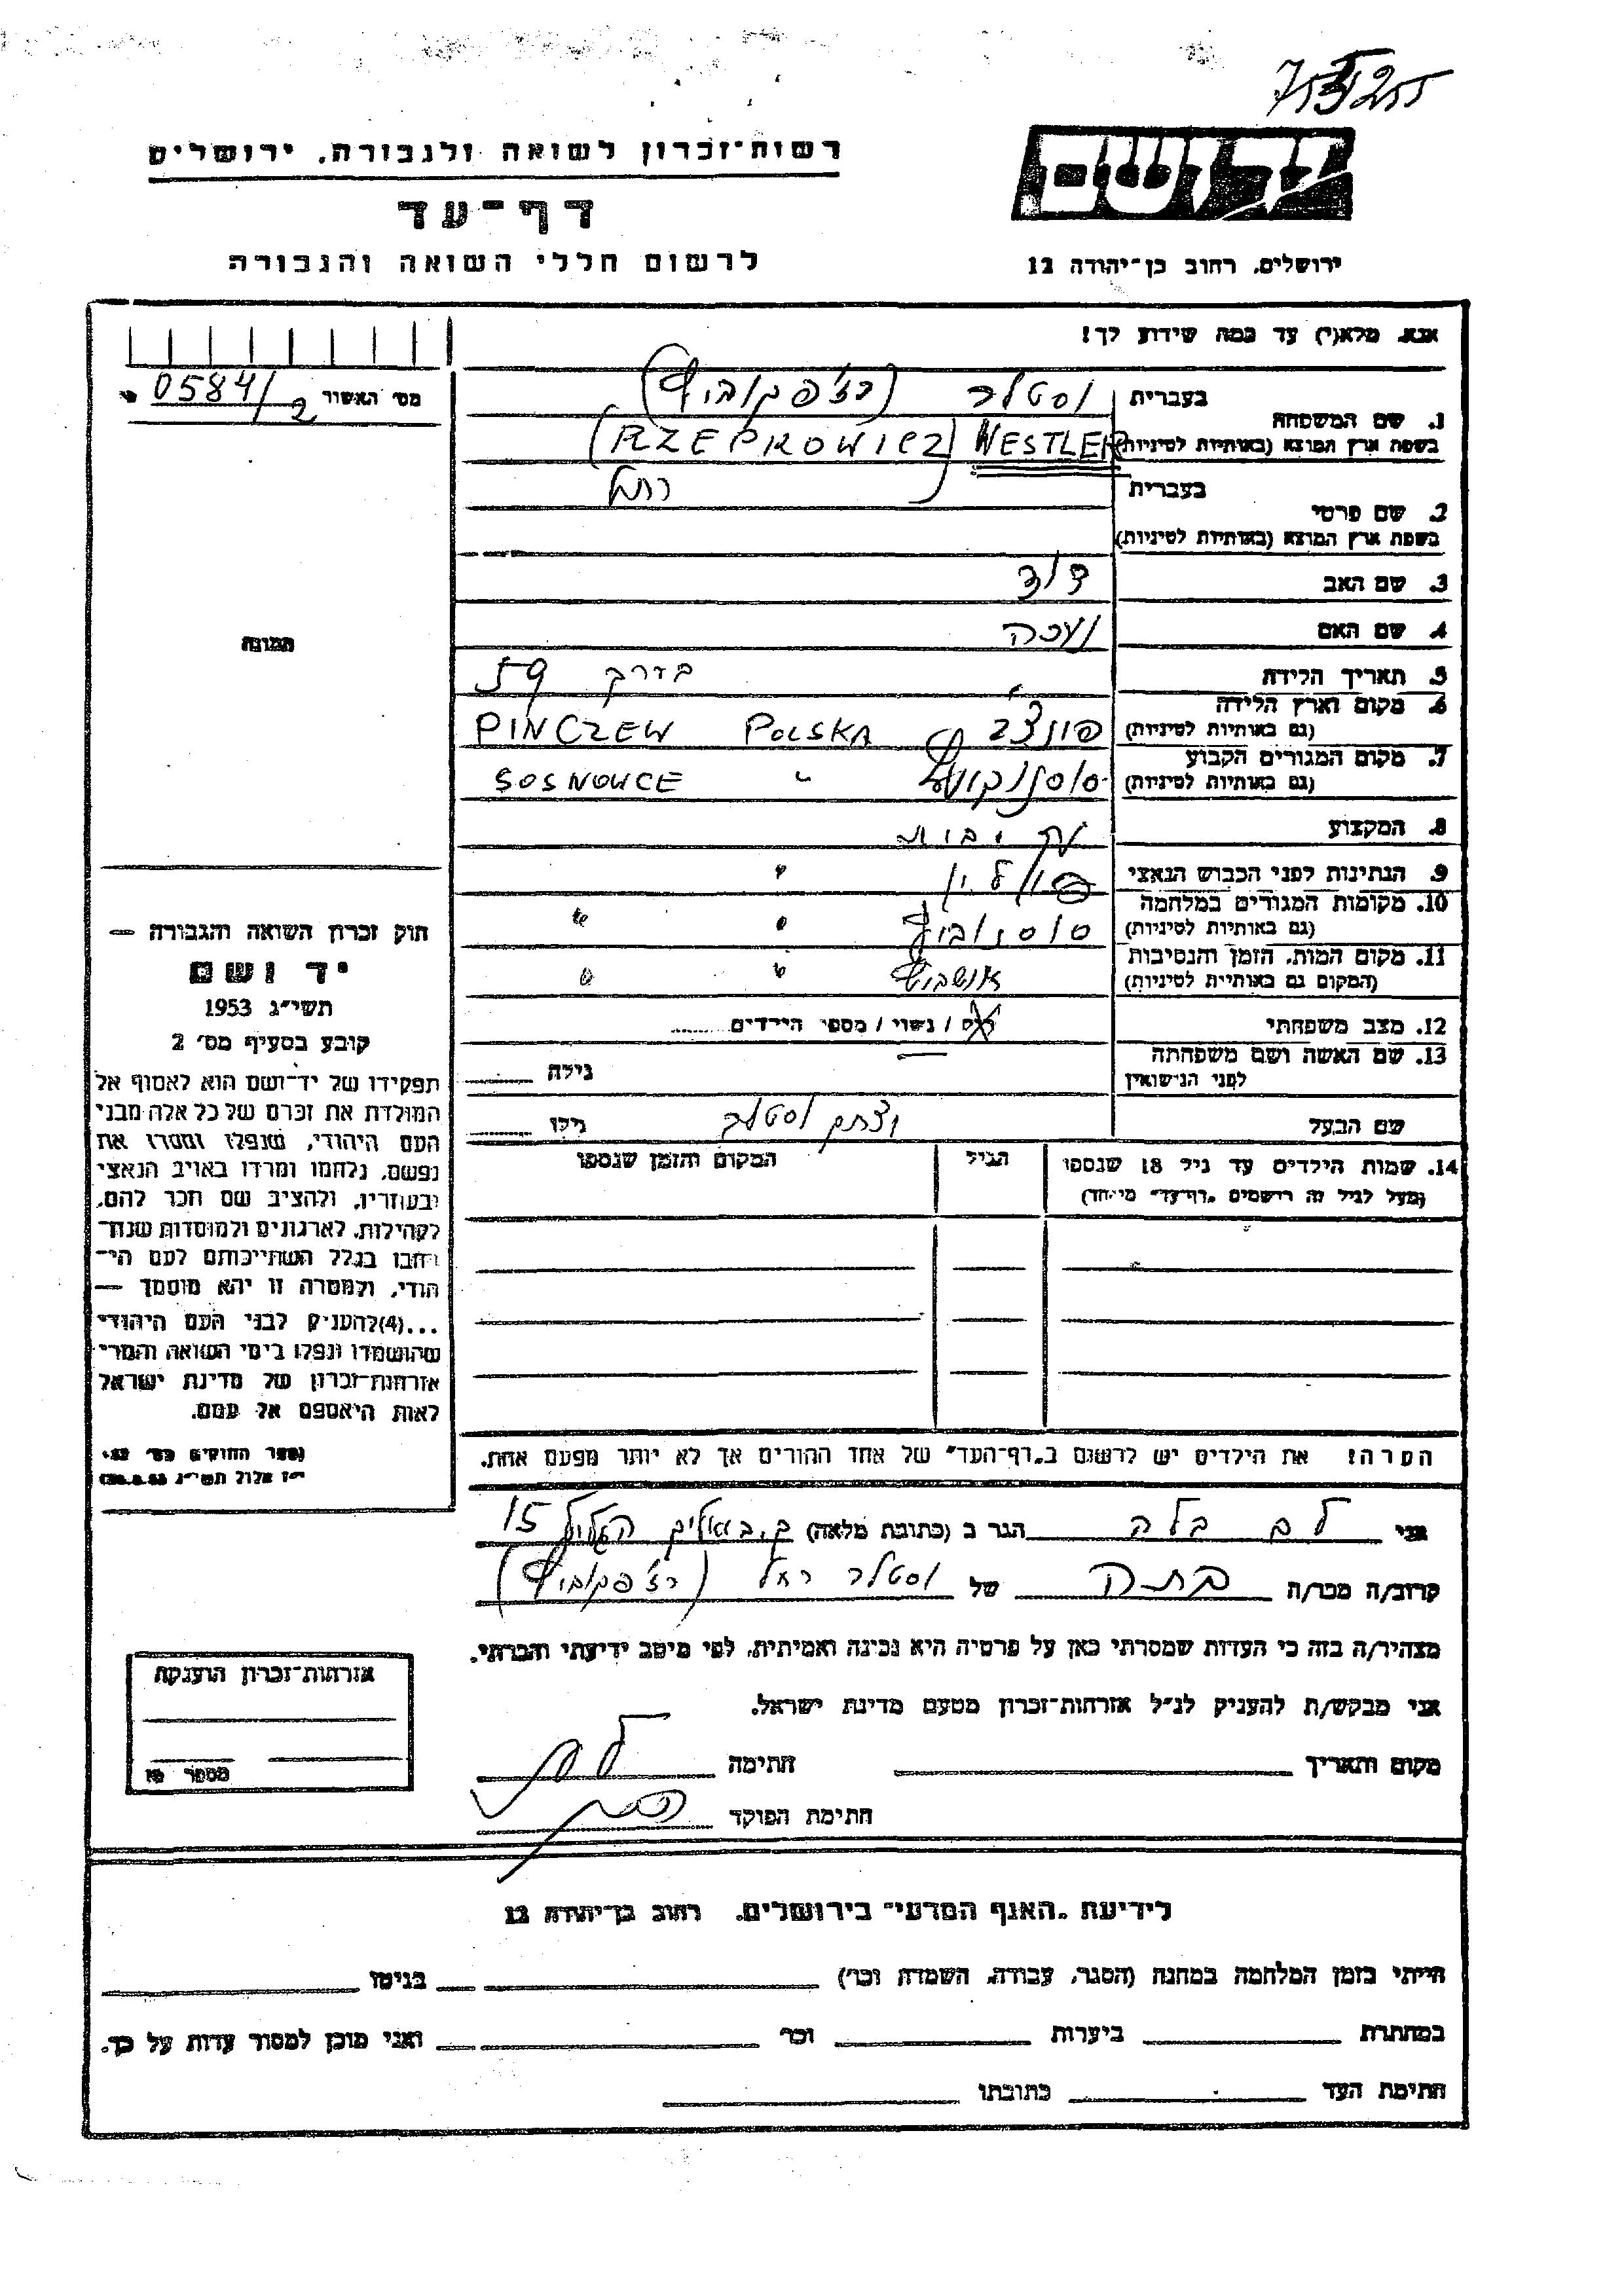 רשות־זכרון לשואה ולגבורה, ירושלים
דף־עד
לרשום חללי השואה והגבורה
יד ושם
ירושלים, רחוב בן־יהודה 12
אנא, מלא(י) עד כמה שידוע לך!
מס׳ האשור 0584/2
1. שם המשפחה
בעברית וסטלר (רז'פקוביץ)
בשפת ארץ המוצא (באותיות לטיניות) WESTLER (RZEPKOWICZ)
2. שם פרטי
בעברית רחל
בשפת ארץ המוצא (באותיות לטיניות)
3. שם האב דוד
4. שם האם
5. תאריך הלידה בערך 59
6. מקום וארץ הלידה
(גם באותיות לטיניות) פינצ'ב POLSKA PINCZEW
7. מקום המגורים הקבוע
(גם באותיות לטיניות) " SOSNOWCE
8. המקצוע עק. בית
9. הנתינות לפני הכבוש הנאצי פולין "
10. מקומות המגורים במלחמה
(גם באותיות לטיניות) סוסנוביץ " "
11. מקום המות, הזמן והנסיבות
(המקום גם באותיות לטיניות) אושביץ " "
12. מצב משפחתי רווק / נשוי / מספר הילדים
13. שם האשה ושם משפחתה
לפני הנישואין גילה
שם הבעל יצחק וסטלר גילו
14. שמות הילדים עד גיל 18 שנספו הגיל המקום והזמן שנספו
(מעל לגיל זה רושמים „דף־עד״ מיוחד)
הערה! את הילדים יש לרשום ב„דף־העד״ של אחד ההורים אך לא יותר מפעם אחת.
תמונה
חוק זכרון השואה והגבורה —
יד ושם
תשי״ג 1953
קובע בסעיף מס׳ 2
תפקידו של יד־ושם הוא לאסוף אל
המולדת את זכרם של כל אלה מבני
העם היהודי, שנפלו ומסרו את
נפשם, נלחמו ומרדו באויב הנאצי
ובעוזריו, ולהציב שם וזכר להם,
לקהילות, לארגונים ולמוסדות שנח־
רבו בגלל השתייכותם לעם הי־
הודי, ולמטרה זו יהא מוסמך —
...(4)להעניק לבני העם היהודי
שהושמדו ונפלו בימי השואה והמרי
אזרחות־זכרון של מדינת ישראל
לאות היאספם אל עמם.
אני לב בלה הגר ב (כתובת מלאה) ק. ביאליק הגליל 15
קרוב/ה מכר/ה בתה של וסטלר רחל (רז'פקוביץ)
מצהיר/ה בזה כי העדות שמסרתי כאן על פרטיה היא נכונה ואמיתית, לפי מיטב ידיעתי והכרתי.
אני מבקש/ת להעניק לנ״ל אזרחות־זכרון מטעם מדינת ישראל.
מקום ותאריך חתימה
חתימת הפוקד
אזרחות־זכרון הוענקה
מספר
לידיעת „האגף המדעי״ בירושלים, רחוב בן־יהודה 12
הייתי בזמן המלחמה במחנה (הסגר, עבודה, השמדה וכו׳) בגיטו
במחתרת ביערות וכו׳ ואני מוכן למסור עדות על כך.
חתימת העד כתובתו